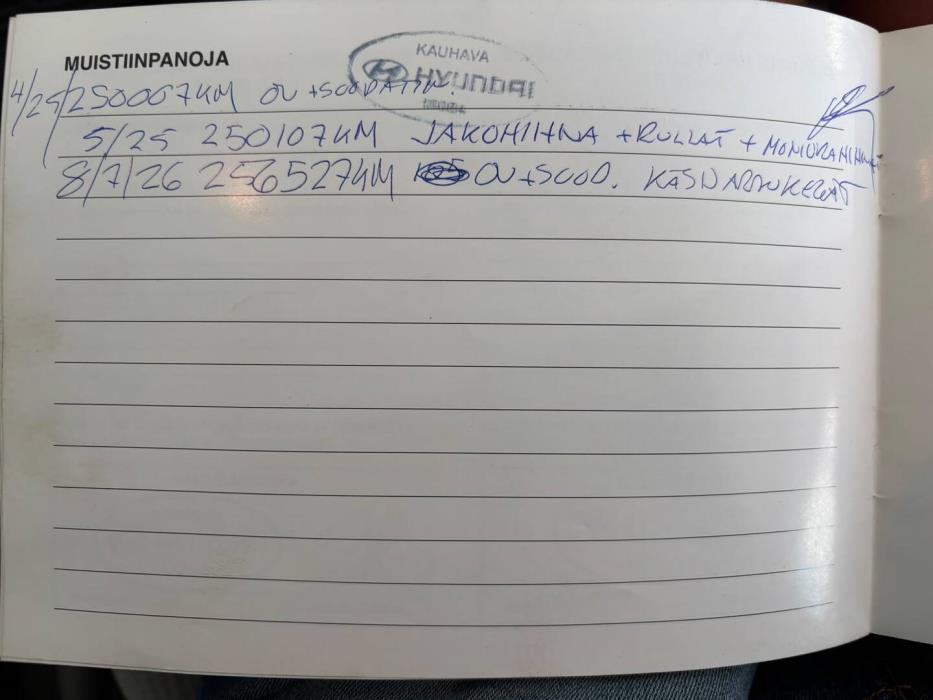 MUISTIINPANOJA
KAUHAVA
HYUNDAI
4/25 250007KM OV+SUODATIN
5/25 250107KM JAKOHIHNA +RULLAT + MONIURAHIHNA
8/7/26 256527KM OV+SUOD. KÄSIJARRUKENGÄT